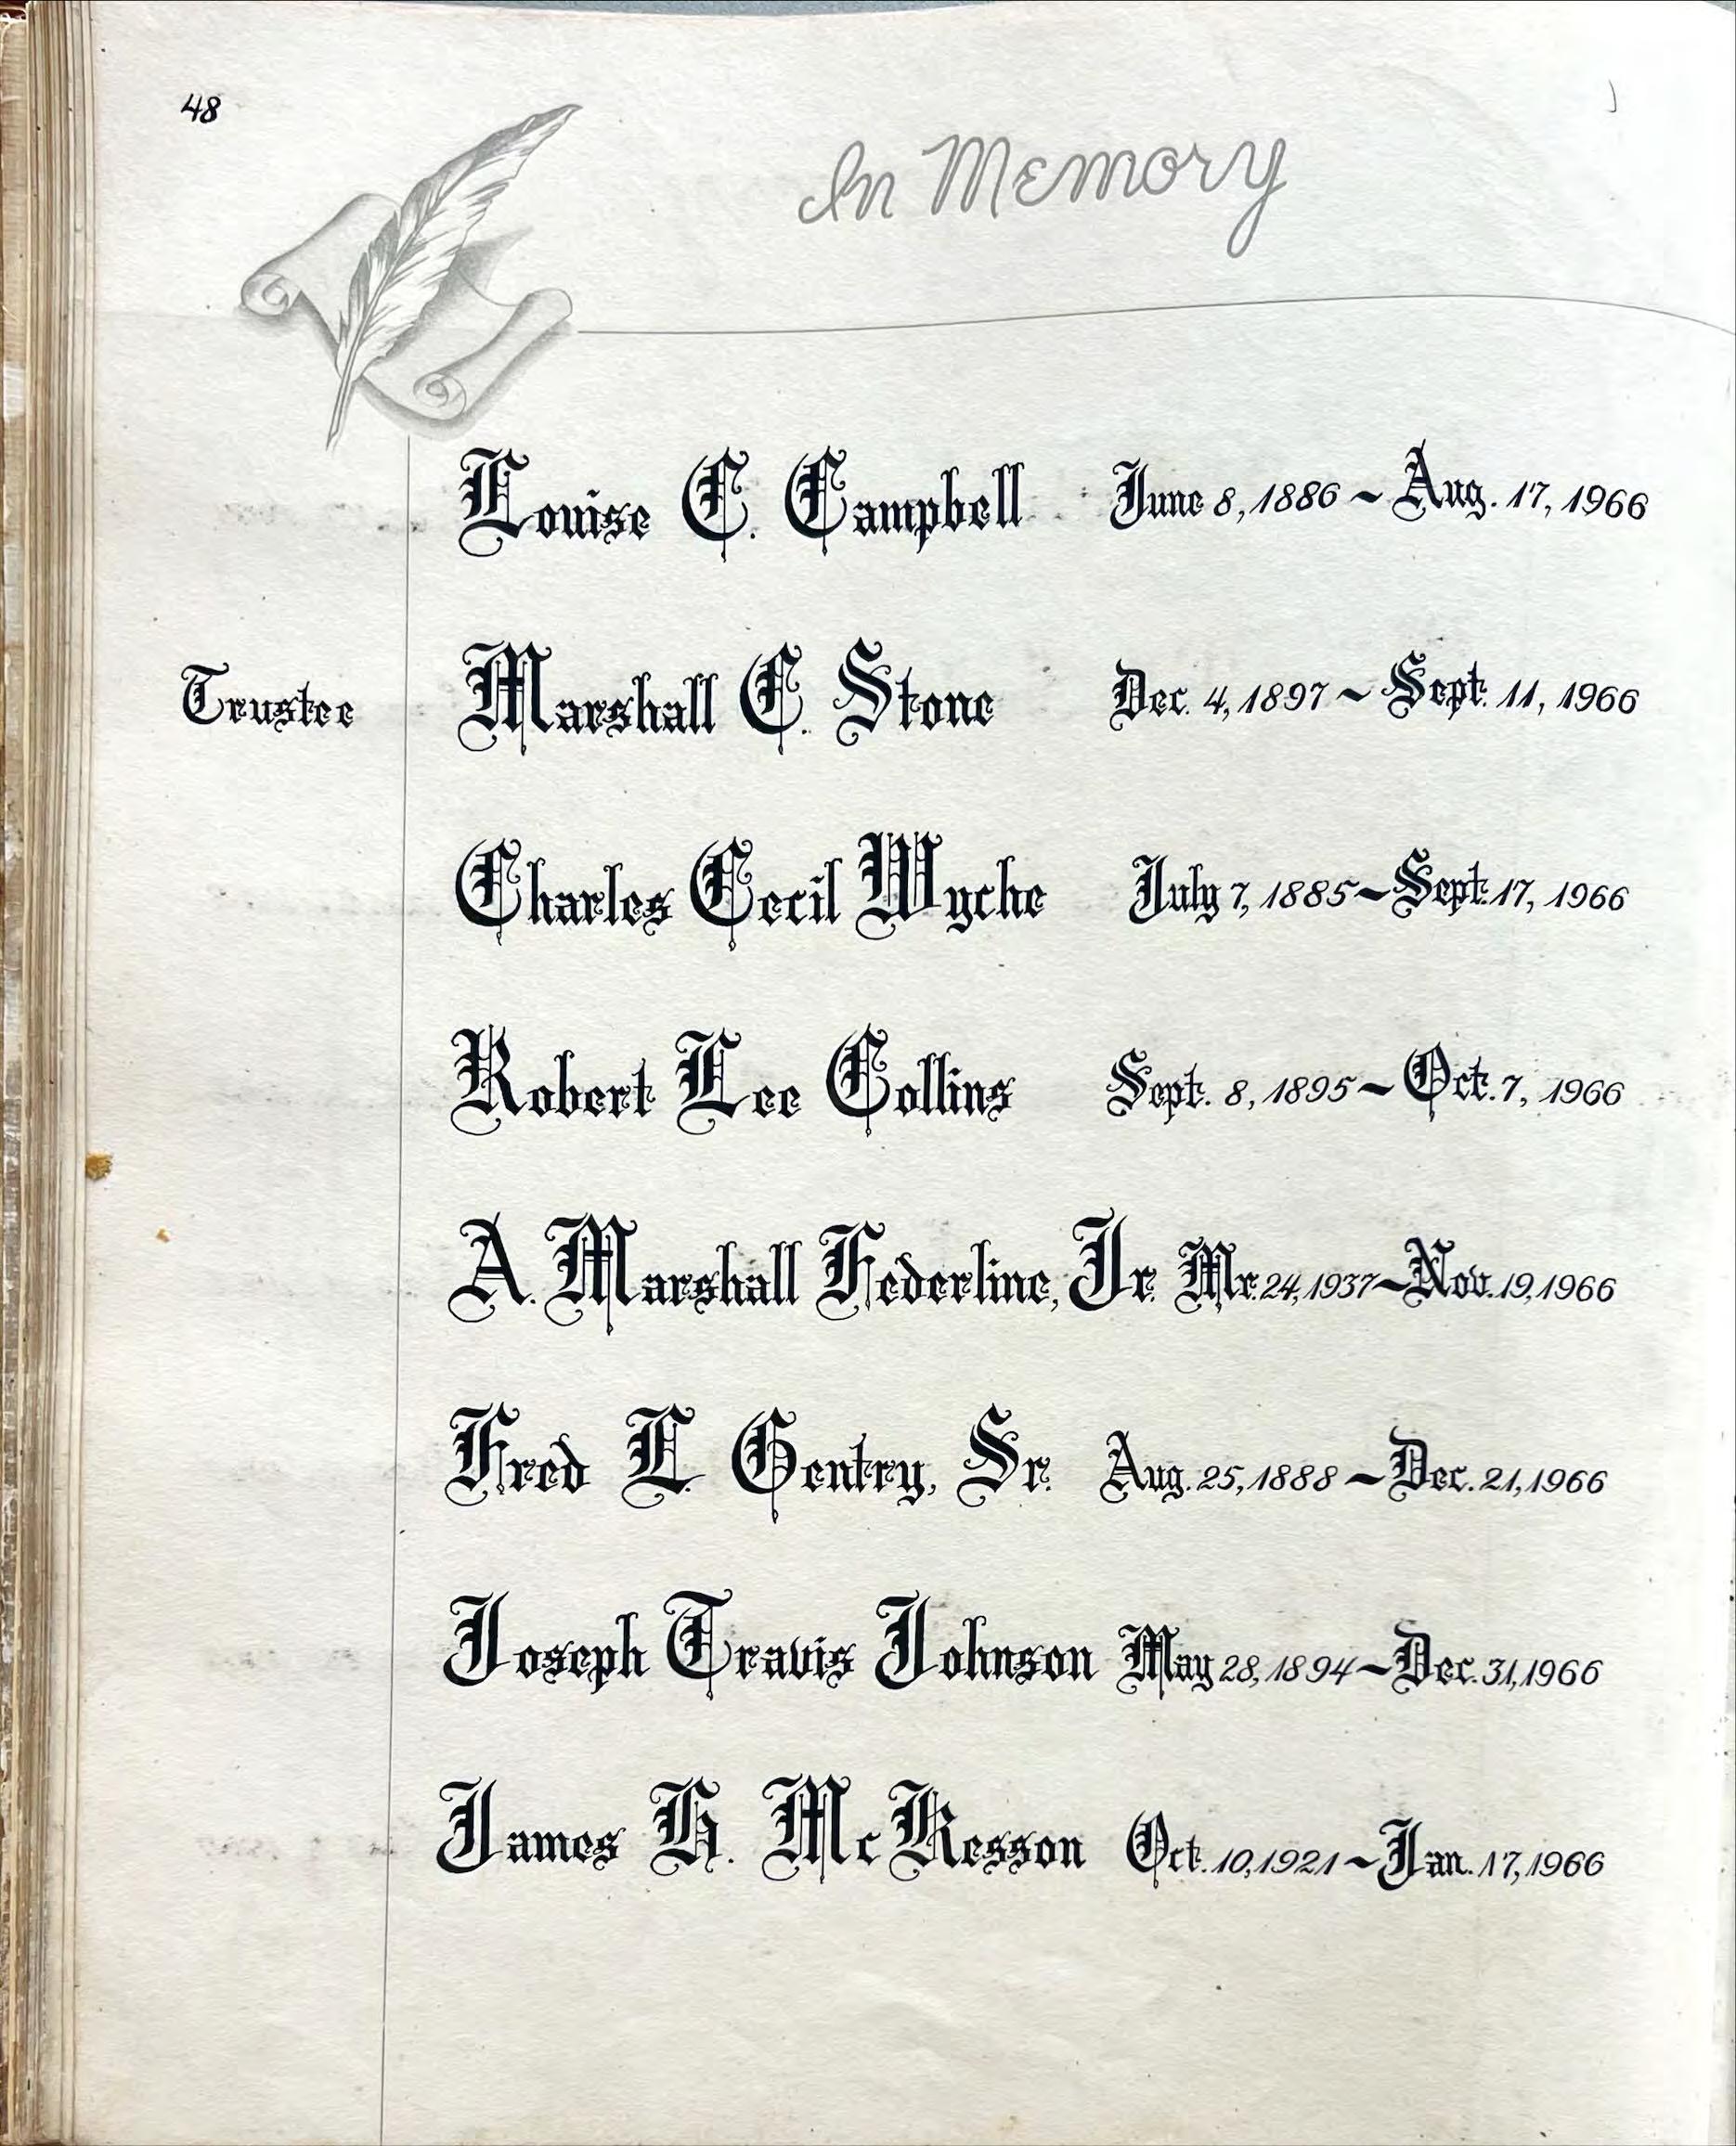 48
In Memory
Louise C. Campbell June 8, 1886 ~ Aug. 17, 1966
Trustee Marshall C. Stone Dec. 4, 1897 ~ Sept. 11, 1966
Charles Cecil Wyche July 7, 1885 ~ Sept. 17, 1966
Robert Lee Collins Sept. 8, 1895 ~ Oct. 7, 1966
A. Marshall Federline, Jr. Mr. 24, 1937 ~ Nov. 19, 1966
Fred L. Gentry, Sr. Aug. 25, 1888 ~ Dec. 21, 1966
Joseph Travis Johnson May 28, 1894 ~ Dec. 31, 1966
James H. McKesson Oct. 10, 1921 ~ Jan. 17, 1966